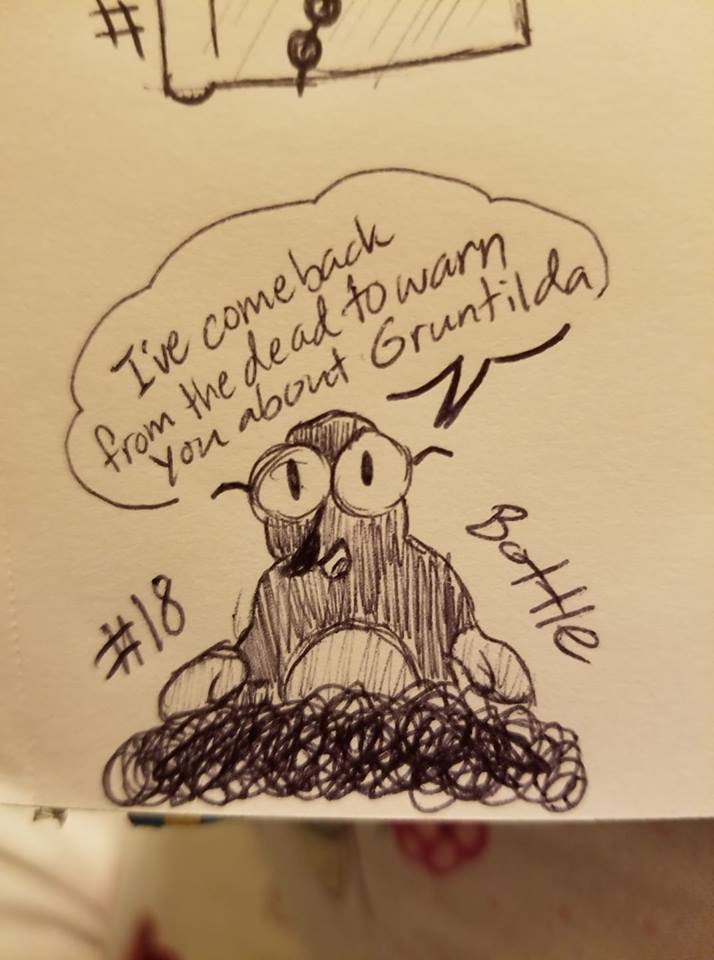 #
I've come back
from the dead to warn
you about Gruntilda
#18
Bottle